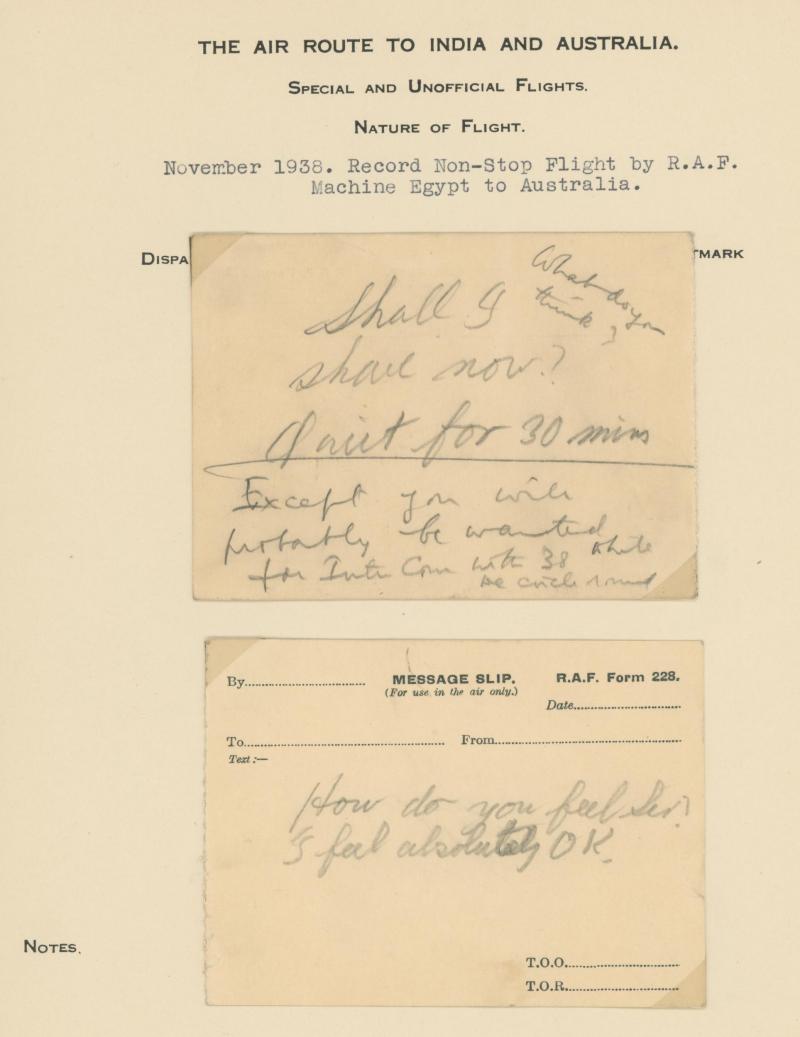 THE AIR ROUTE TO INDIA AND AUSTRALIA.
SPECIAL AND UNOFFICIAL FLIGHTS.
NATURE OF FLIGHT.
November 1938. Record Non-Stop Flight by R.A.F.
Machine Egypt to Australia.
DISPA
TMARK
Shall I
shave now?
What do you
think?
Quiet for 30 mins
Except you will
probably be wanted
for Inter Com with 38 while
we circle round
By
MESSAGE SLIP.
R.A.F. Form 228.
(For use in the air only.)
Date
To
From
Text :—
How do you feel Sir?
I feel absolutely OK.
NOTES.
T.O.O.
T.O.R.